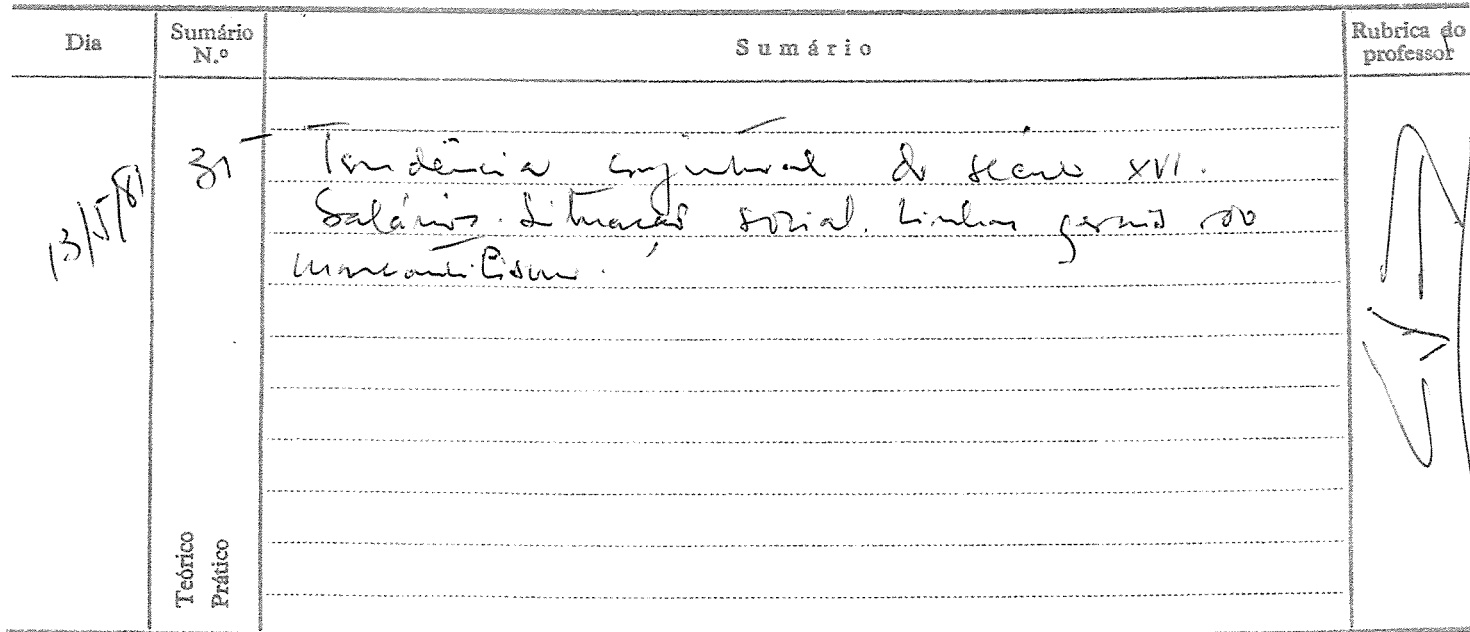 Dia
Sumário N.º
Sumário
Rubrica do professor
13/5/81
31
Tendência conjuntural do século XVI.
Salários. Situação social. Linhas gerais do
mercantilismo.
Teórico
Prático